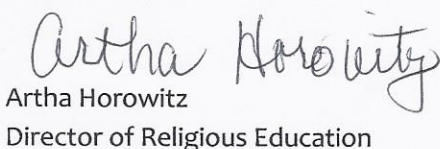 Artha Horowitz
Artha Horowitz
Director of Religious Education